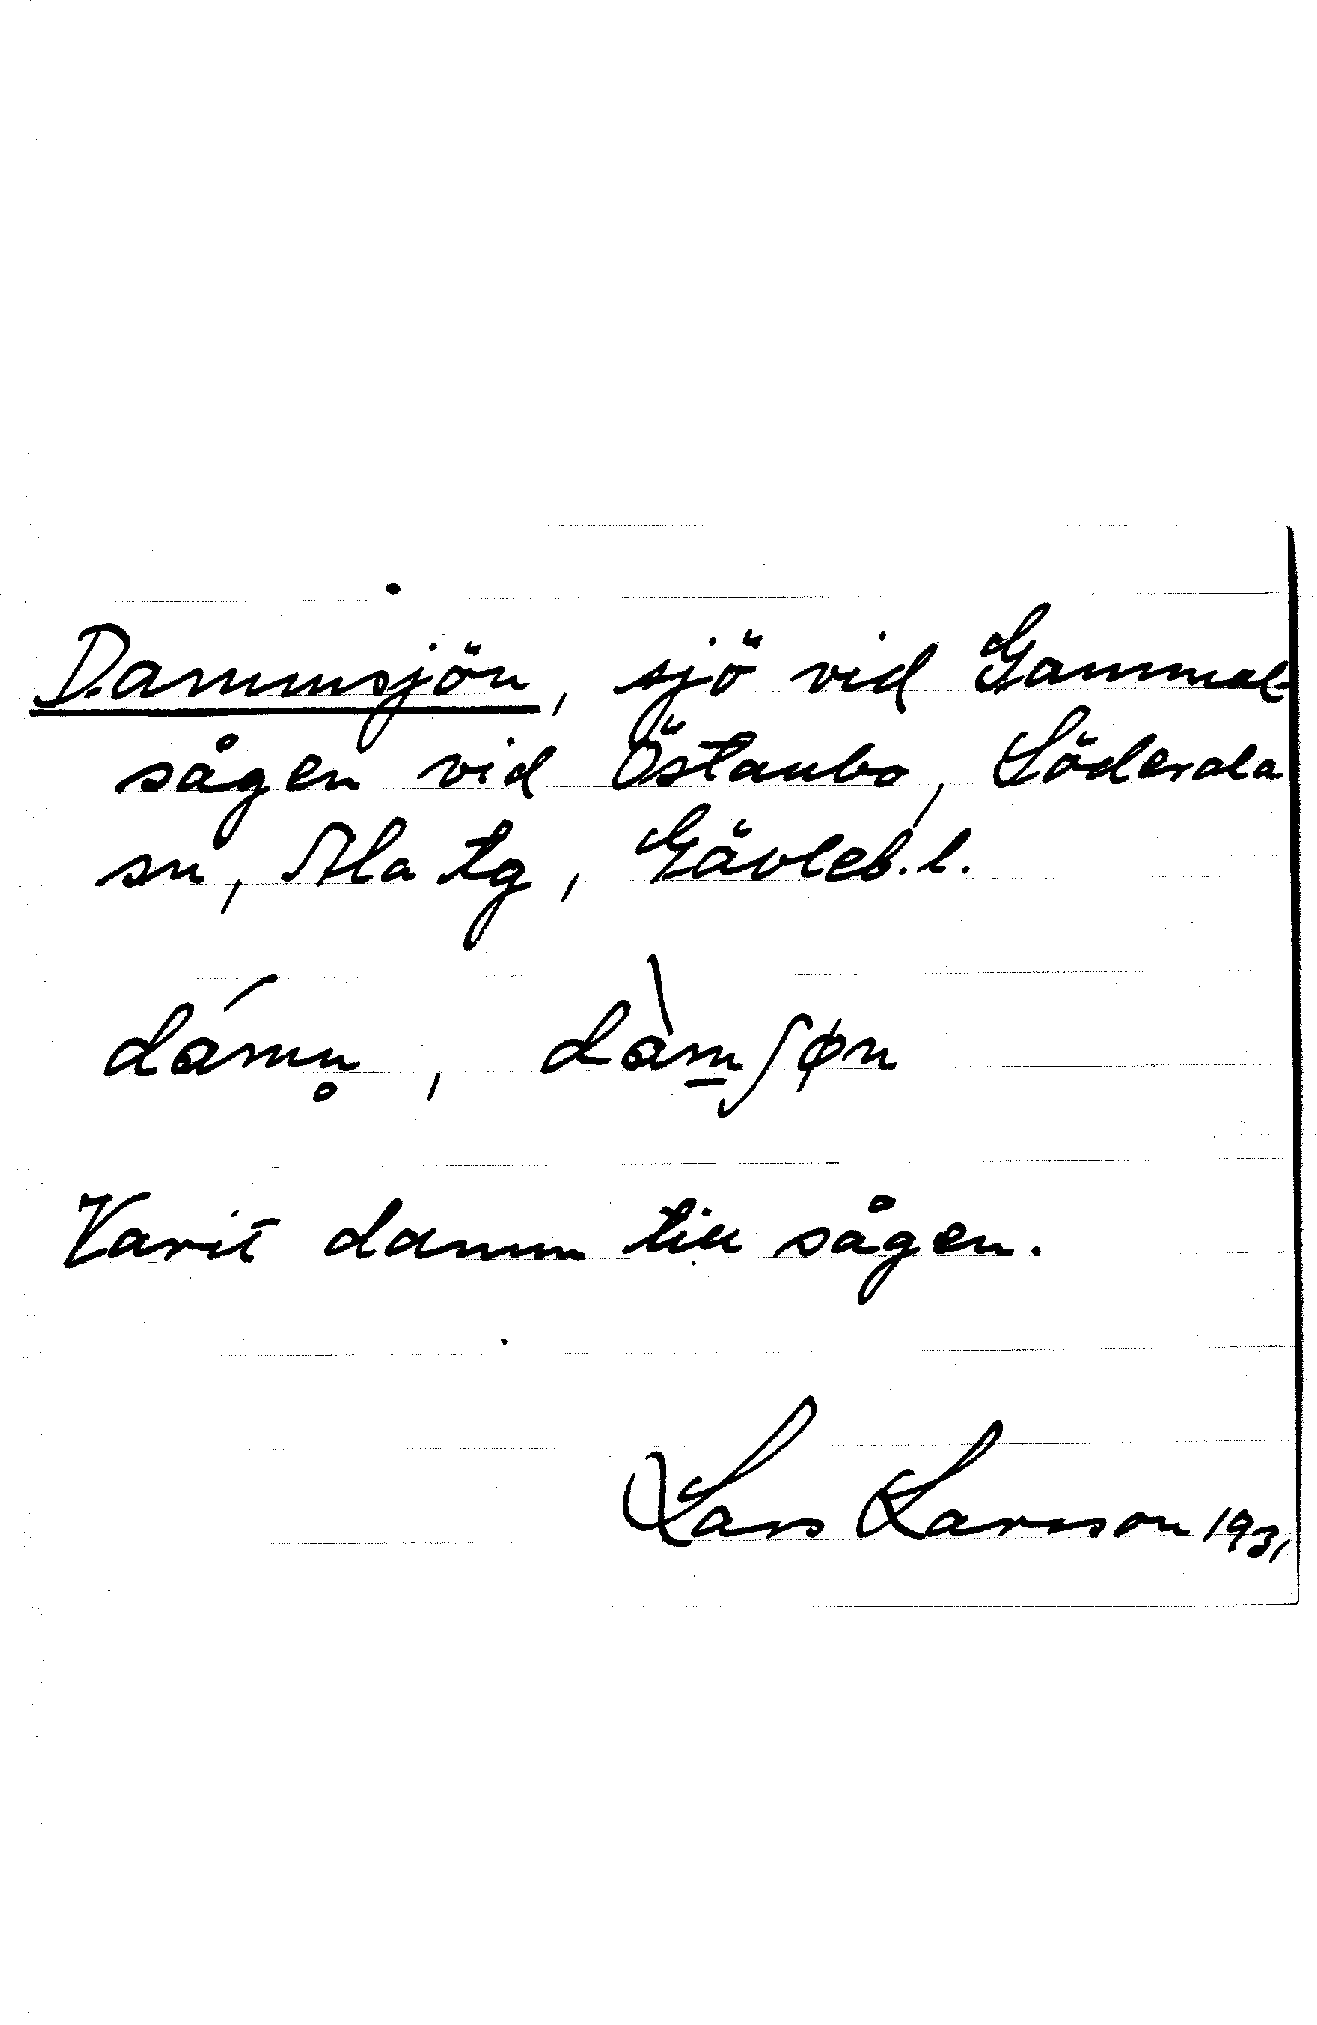 Dammsjön, sjö vid Gammel-
sågen vid Östanbo, Söderala
sn, Ala tg, Gävleb. l.
dámn̥, dàm̲ʃøn
Varit damm till sågen.
Lars Larsson 1931